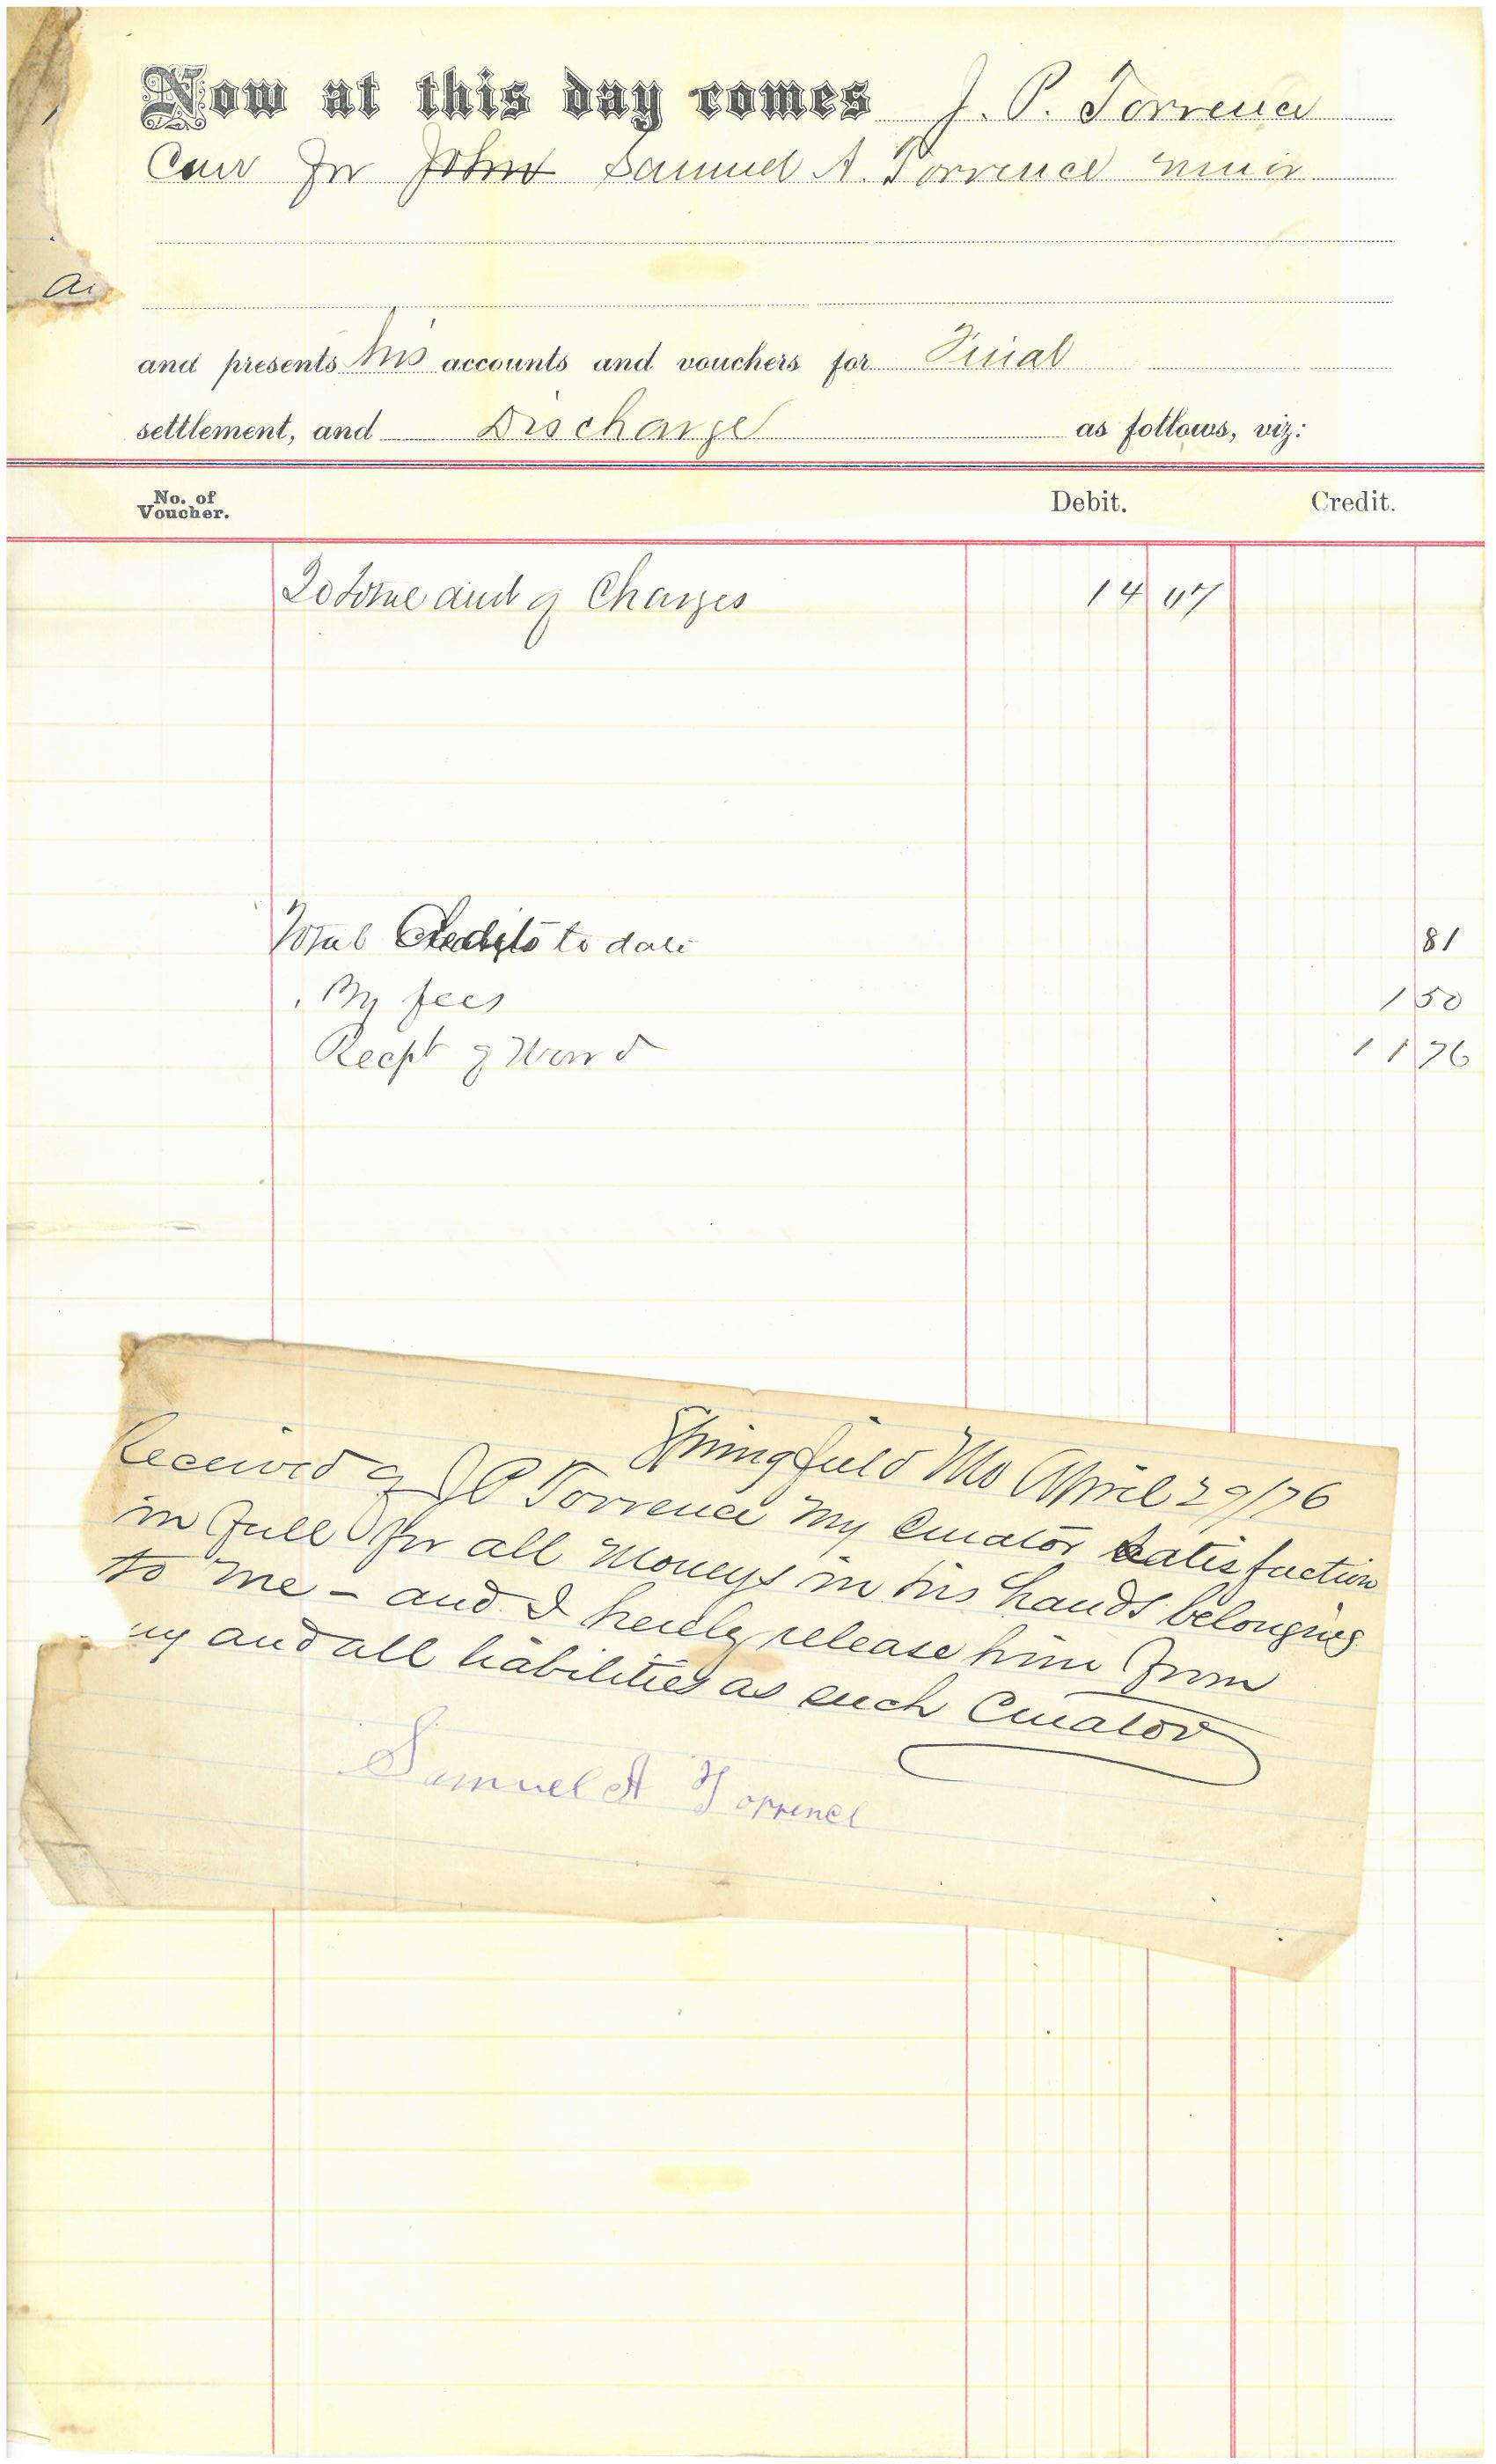 Now at this day comes J. P. Torrence
Cur for John Samuel A. Torrence minor
and presents his accounts and vouchers for Final
settlement, and Discharge as follows, viz:
No. of Voucher. Debit. Credit.
To total amt of Charges 14 07
Total Credits to date 81
By fees 1 50
Recpt of Ward 11 76
Springfield Mo April 29/76
Received of J P Torrence my Curator satisfaction
in full for all moneys in his hands belonging
to me - and I hereby release him from
ny and all liabilities as such Curator
Samuel A Torrence